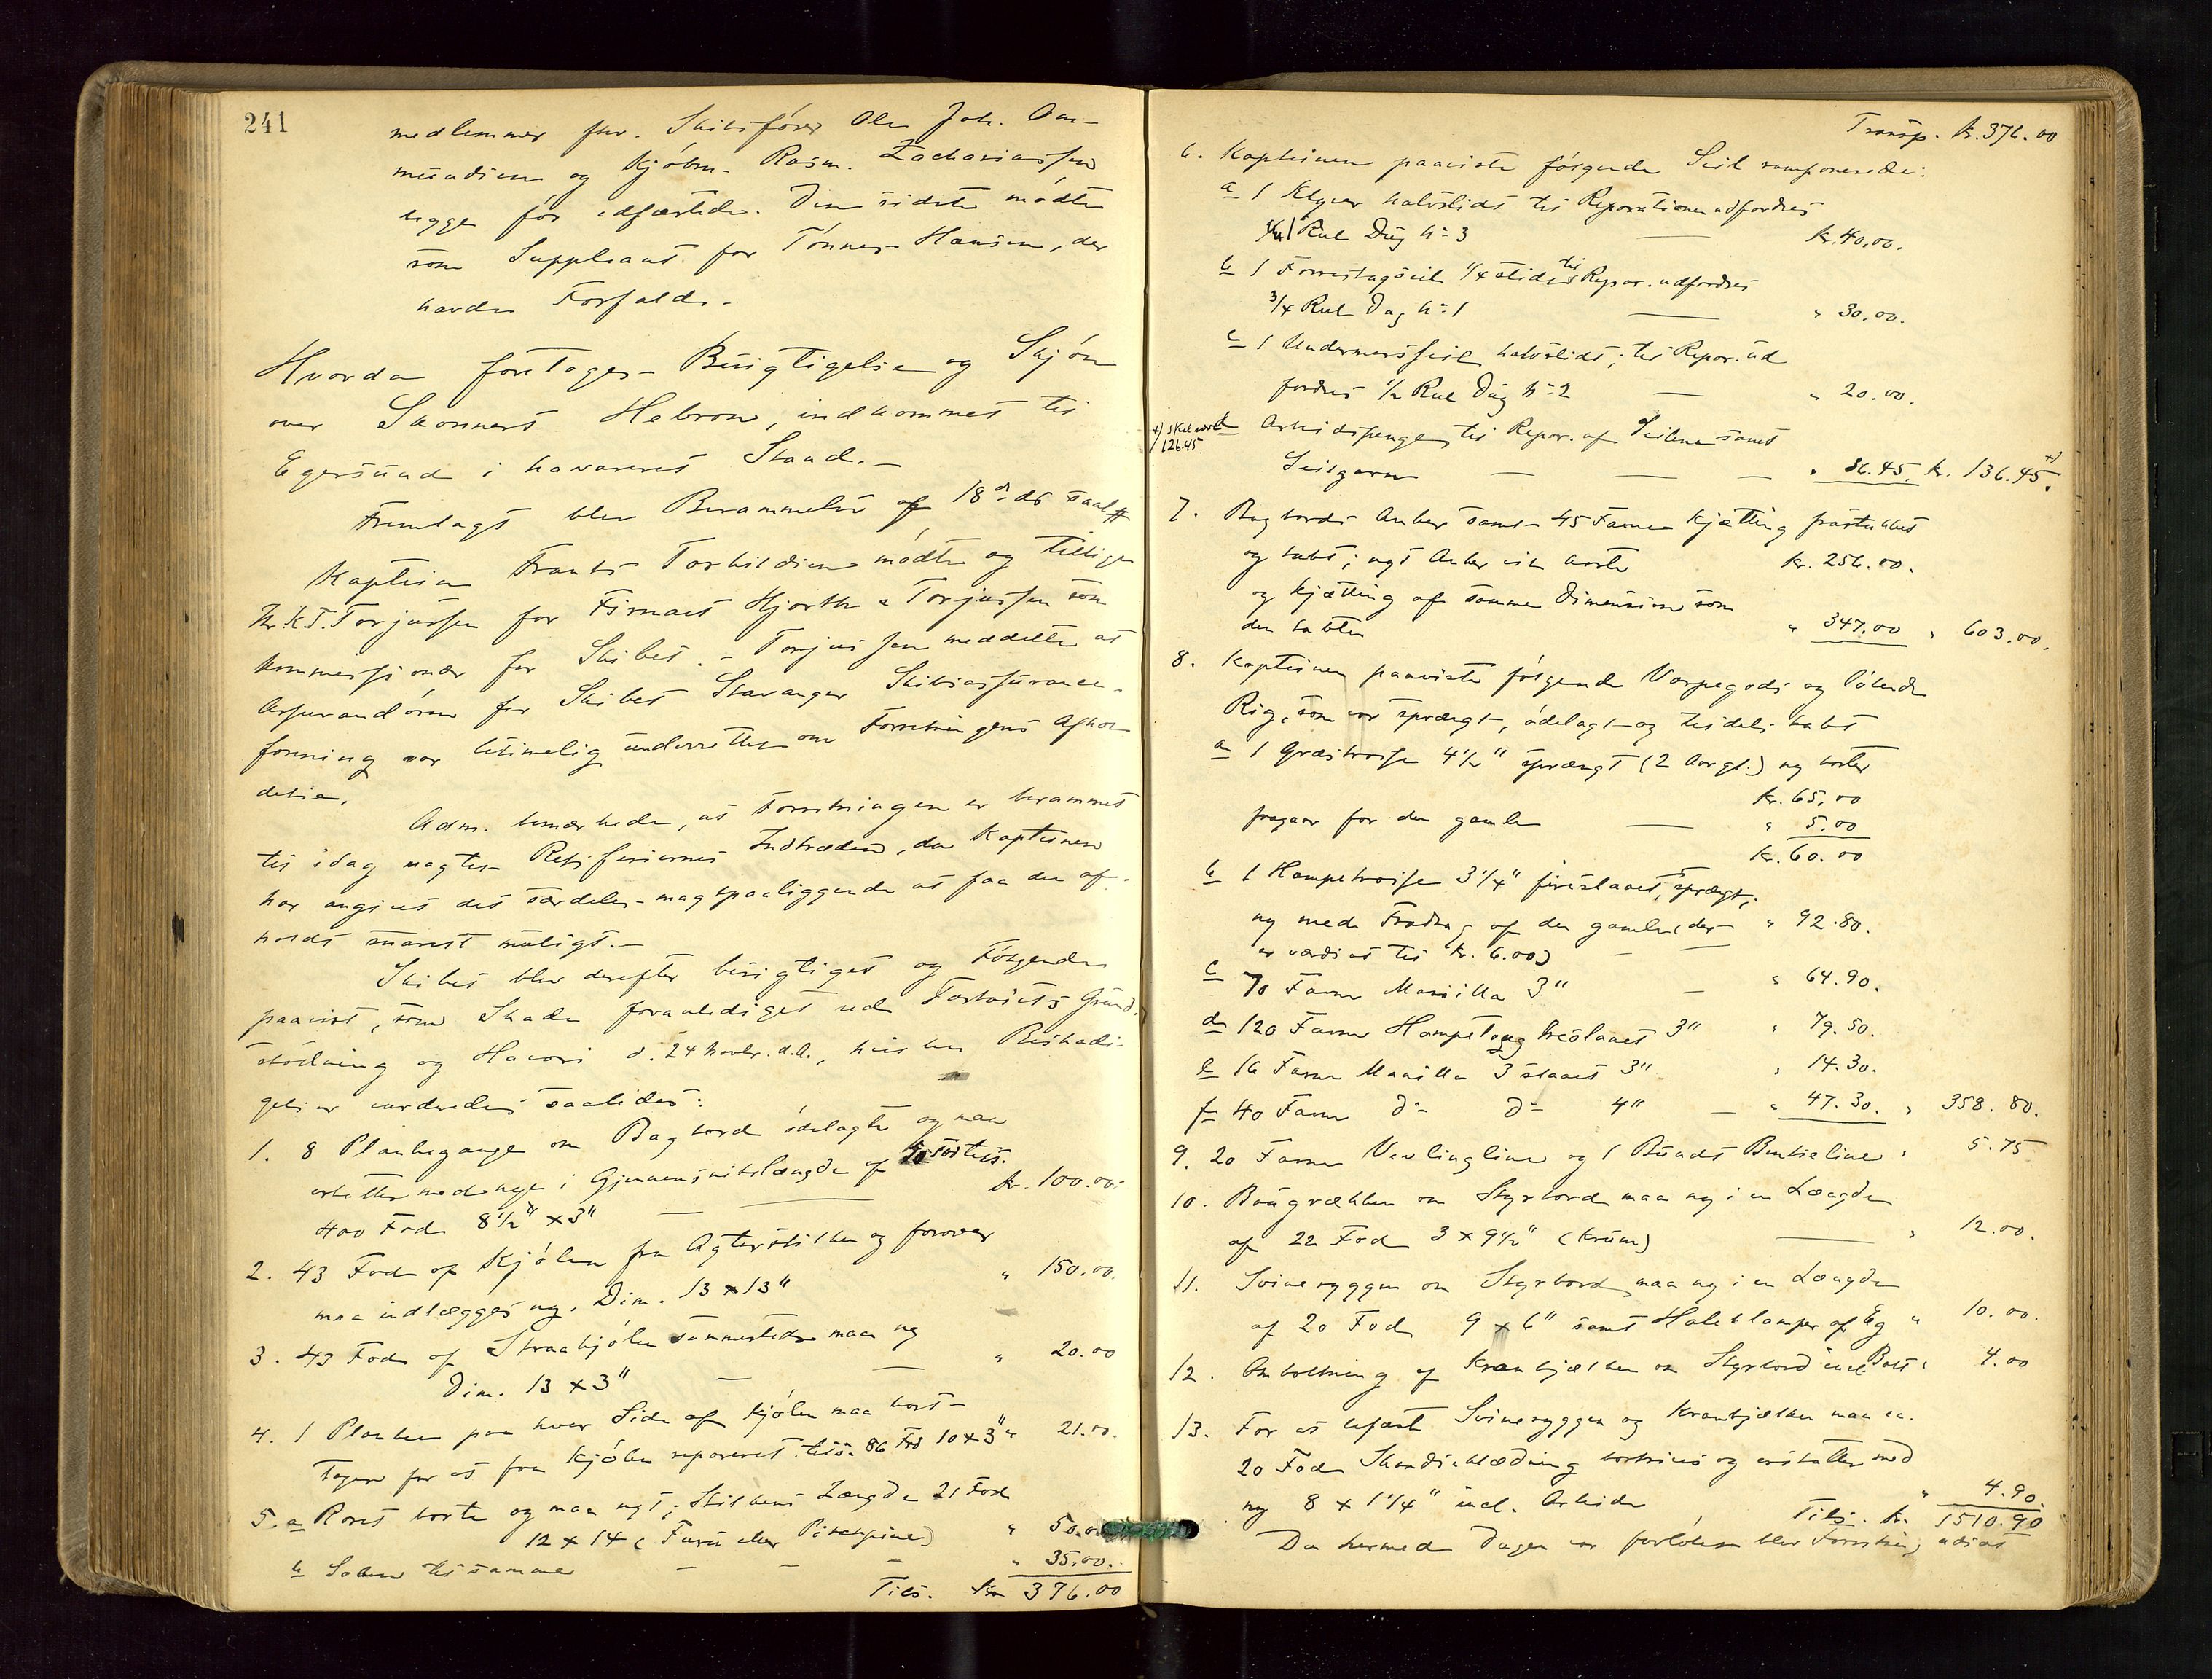 241
medlemmer hr. Skibsfører Ole Joh. Aa-
mundsen og Kjøbm. Rasm. Zachariassen
begge før edfæstede. Den sidste mødte
som Suppleant for Tønnes Hansen, der
havde Forfald. -
Hvorda foretoges Besigtigelse og Skjøn
over Skonnert Hebron, indkommet til
Egersund i havareret Stand. -
Fremlagt blev Berammelse af 18de ds saal.
Kaptein Frants Torkildsen mødte og tillige
Hr. K. T. Torjussen for Firmaet Hjorth & Torjussen som
Kommissionær for Skibet. - Torjussen meddelte at
Assurandøren for Skibet Stavanger Skibsassurance-
forening var betimelig underrettet om Forretningens Afhol-
delse.
Adm. bemærkede, at Forretningen er berammet
til idag uagtet Retsferiernes Indtræden, da Kapteinen
har angivet det særdeles magtpaaliggende at faa den af-
holdt snarest muligt. -
Skibet blev derefter besigtiget og Følgende
paavist, som Skade foranlediget ved Fartøiets Grund-
stødning og Havari d. 24 Novbr. d.A., hvilken Beskadi-
gelse vurderedes saaledes:
1. 8 Plankegange om Bagbord ødelagte og maa
erstattes med nye i Gjennemsnitslængde af 50 Fod tils.
400 Fod 8½" x 3" — kr. 100.00.
2. 43 Fod af Kjølen fra Agterstilken og forover
maa indlægges ny. Dim. 13 x 13" " 150.00.
3. 43 Fod af Straakjølen sammesteds maa ny
Dim. 13 x 3" — " 20.00
4. 1 Planke paa hver Side af Kjølen maa bort-
tages for at faa Kjølen repareret tils. 86 Fod 10 x 3" " 21.00.
5. a Roret borte og maa nyt; Stilkens Længde 21 Fod
12 x 14 (Furu eller Pitchpine) " 50.00
b Laken til samme — " 35.00.
Tils. Kr 376.00
Transp. kr. 376.00
6. Kapteinen paaviste følgende Seil ramponerede:
a 1 Klyver halvslidt til Reparationen udfordres
1 Rul Dug N= 3 — kr. 40.00.
b 1 Forrestagseil ¼ slidt til Repar. udfordres
3/4 Rul Dug N= 1 — " 30.00.
c 1 Undermersseil halvslidt; til Repar. ud
fordres ½ Rul Dug N= 2 — " 20.00.
+) skal være
126.45
d Arbeidspenge til Repar. af Seilene samt
Seilgarn — " 36.45. kr. 136.45 +)
7. Bagbords Anker samt 45 Favne Kjætting frastukket
og tabt; nyt Anker kr. 256.00.
og Kjætting af samme Dimension som
den tabte " 347.00 " 603.00.
8. Kapteinen paaviste følgende Varpegods og løbende
Rig, som var sprængt, ødelagt og tildels tabt
a 1 Græstrosse 4½" sprængt (2 Aar gl.) ny koster
kr. 65.00
fragaar for den gamle — " 5.00
kr. 60.00
b 1 Hampetrosse 3¼" fireslaaet, sprængt,
ny med Fradrag af den gamle (der — " 92.80.
er værdsat til kr. 6.00)
c 70 Favne Manilla 3" — " 64.90.
d 120 Favne Hampetoug treslaaet 3" " 79.50.
e 16 Favne Manilla 3 slaaet 3" " 14.30.
f 40 Favne do do 4" — " 47.30. " 358.80.
9. 20 Favne Vevlingline og 1 Bundt Benseline " 5.75
10. Bougrækken om Styrbord maa ny i en Længde
af 22 Fod 3 x 9½" (Krum) — " 12.00.
11. Svineryggen om Styrbord maa ny i en Længde
af 20 Fod 9 x 6" samt Haleklamper af Eg " 10.00.
12. Ombolting af Kranbjælken om Styrbord incl. Bolt " 4.00
13. For at befæste Svineryggen og Kranbjælken maa ca.
20 Fod Skandseklædning bortrives og erstattes med
ny 8 x 1¼" incl. Arbeide " 4.90.
Tils. kr. 1510.90
Da hermed Dagen var forløben blev Forretning udsat